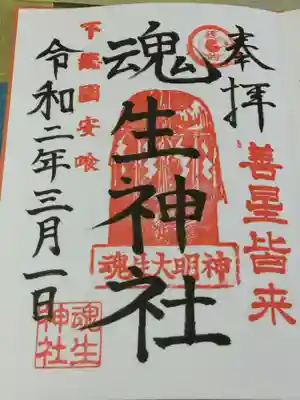 奉拝
善星皆来
魂生神社
魂生大明神
下總國安喰
令和二年三月一日
魂生
神社